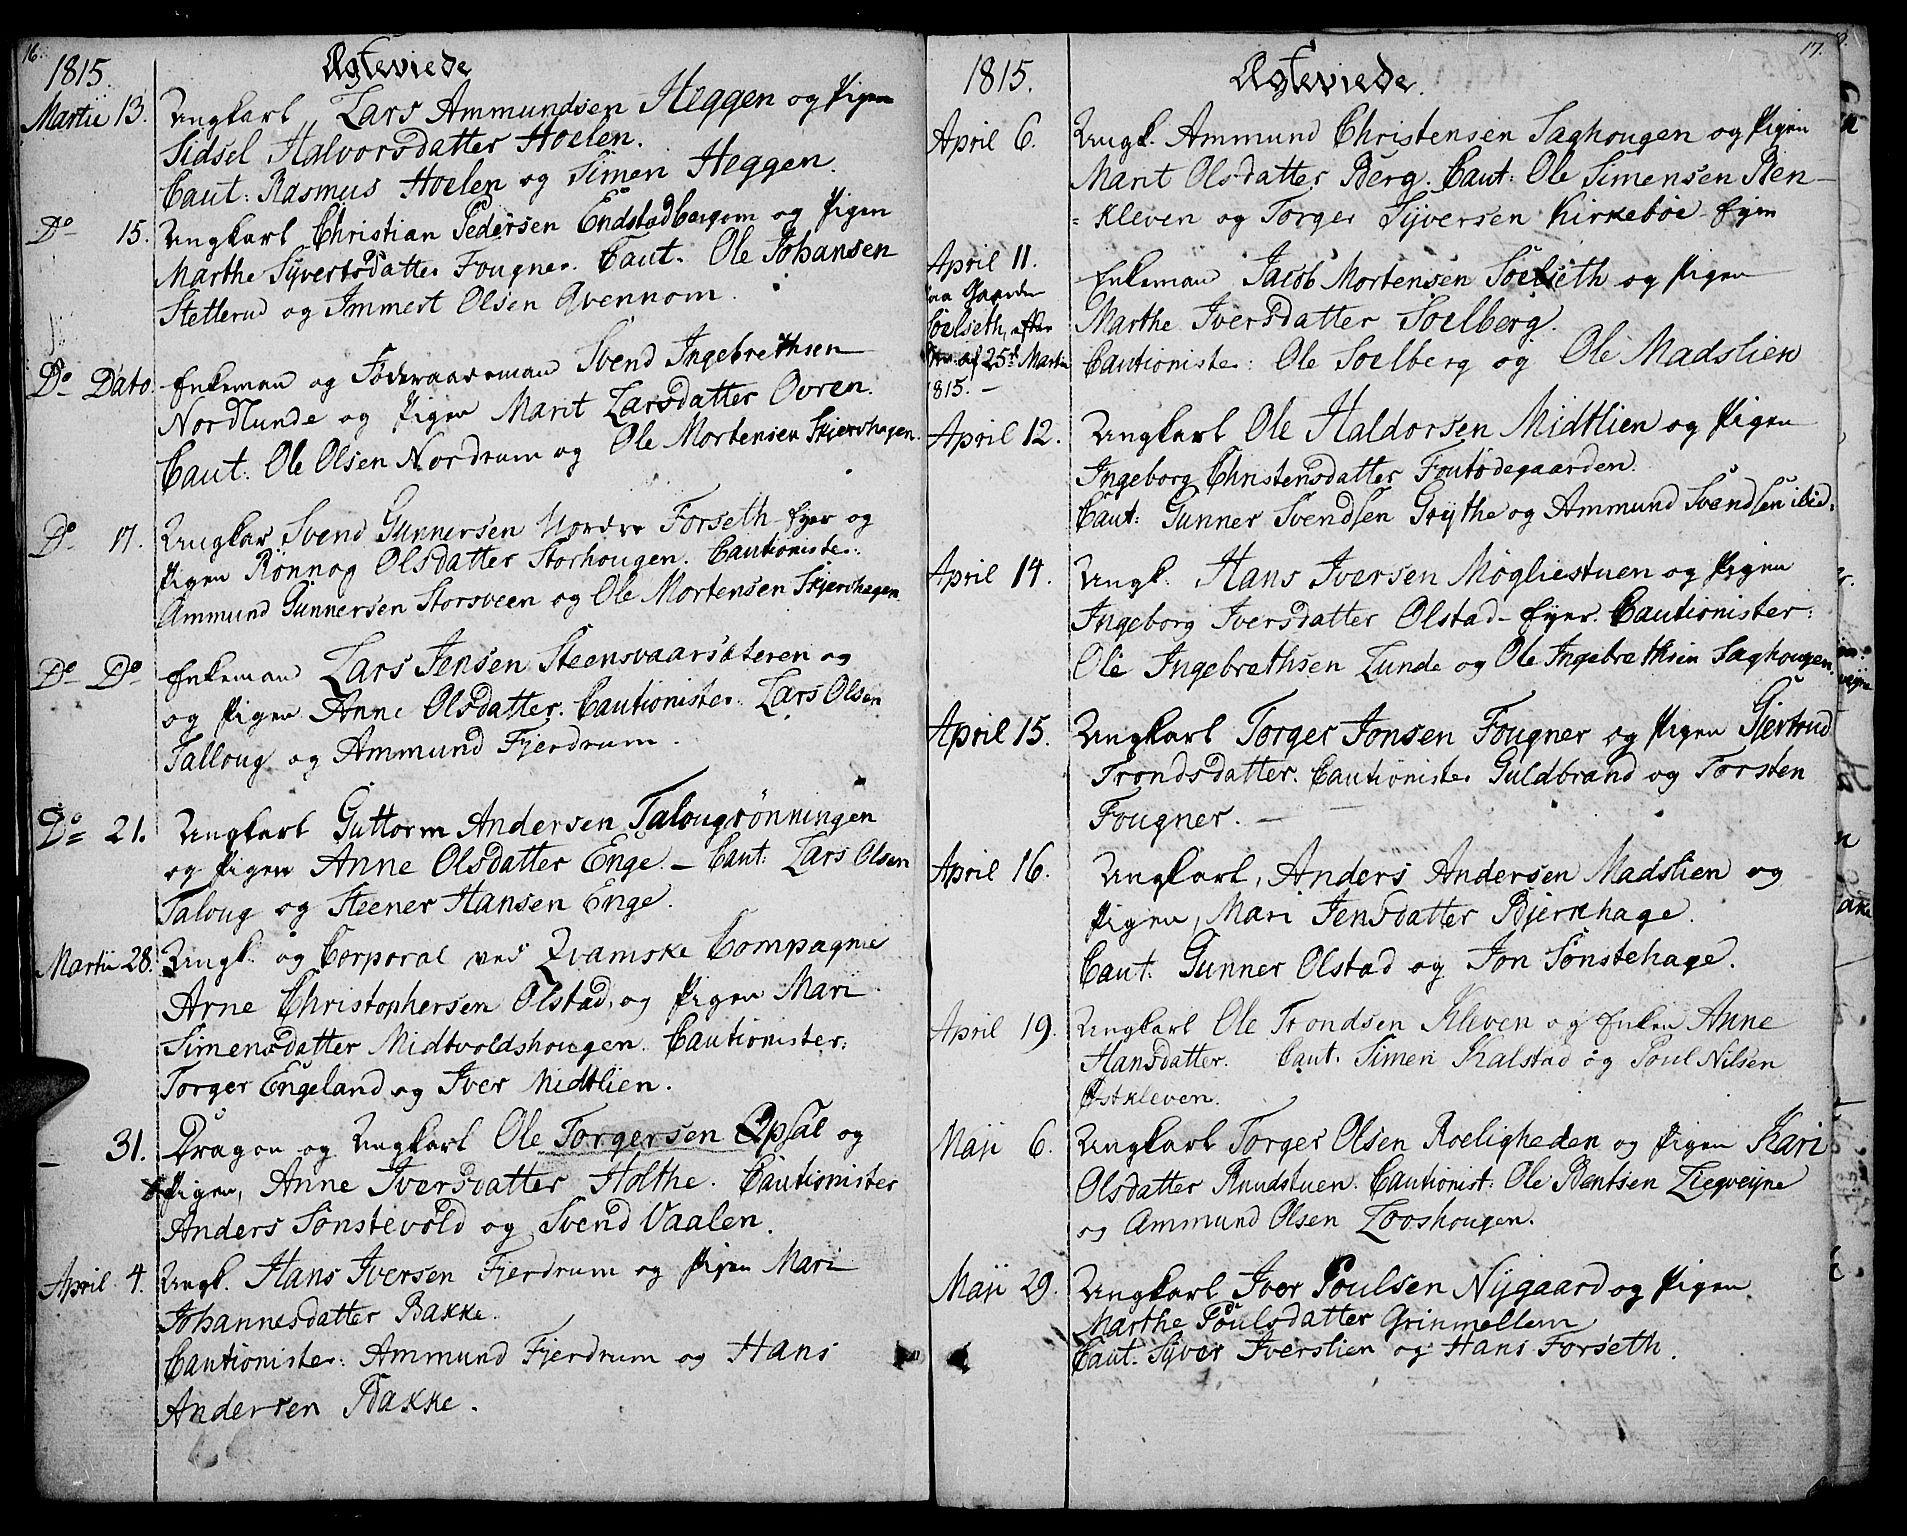 16.
1815. Ægteviede
Martii 13. Ungkarl Lars Ammundsen Heggen og Pigen
Sidsel Halvorsdatter Hoelen.
Caut: Rasmus Hoelen og Simen Heggen.
Do 15. Ungkarl Christian Pedersen Endstadbergom og Pigen
Marthe Syvertsdatter Fougner. Caut. Ole Johansen
Stetterud og Immert Olsen Qvennom.
Do Dato. Enkeman og Föderaadsman Svend Ingebrethsen
Nordlunde og Pigen Marit Larsdatter Ovren.
Caut: Ole Olsen Nordrum og Ole Mortensen Skjershagen.
Do 17. Ungkar Svend Gunnersen Nordre Forseth-Ejer og
Pigen Rönnog Olsdatter Storhougen. Cautionister:
Ammund Gunnersen Storsveen og Ole Mortensen Skjershagen
Do Do Enkeman Lars Jensen Steensvaarsæteren og
og Pigen Anne Olsdatter. Cautionister: Lars Olsen
Talloug og Ammund Fjerdrum.
Do 21. Ungkarl Guttorm Andersen Talougrönningen
og Pigen Anne Olsdatter Enge. - Caut: Lars Olsen
Taloug og Steener Hansen Enge.
Martii 28. Ungk. og Corporal ved Qvamske Compagnie
Arne Christophersen Olstad, og Pigen Mari
Simensdatter Midtvoldshougen. Cautionister:
Torger Engeland og Iver Midtlien.
- 31. Dragon og Ungkarl Ole Torgersen Opsal og
Pigen, Anne Iversdatter Holthe. Cautionister
Anders Sönstevold og Svend Vaalen.
April 4. Ungk. Hans Iversen Fjerdrum og Pigen Mari
Johannesdatter Bakke.
Cautionister: Ammund Fjerdrum og Hans
Andersen Bakke.
17.
1815. Ægteviede.
April 6. Ungk. Ammund Christensen Saghougen og Pigen
Marit Olsdatter Berg. Caut: Ole Simensen Ren-
=kleven og Torger Syversen Kirkeböe-Ejen
April 11. Enkeman Jacob Mortensen Soelseth og Pigen
paa Gaarden
Soelseth, efter Marthe Iversdatter Soelberg.
af 25d Martii Cautionister: Ole Soelberg og Ole Madslien
1815. -
April 12. Ungkarl Ole Haldorsen Midtlien og Pigen
Ingeborg Christensdatter Foutödegaarden.
Caut: Gunner Svendsen Grythe og Ammund Svendsen ibid.
April 14. Ungk. Hans Iversen Mögliestuen og Pigen
Ingeborg Iversdatter Olstad-Ejer. Cautionister:
Ole Ingebrethsen Lunde og Ole Ingebrethsen Saghougen.
April 15. Ungkarl Torger Jonsen Fougner og Pigen Giertrud
Trondsdatter. Cautionister Guldbrand og Torsten
Fougner. -
April 16. Ungkarl, Anders Andersen Madslien og
Pigen, Mari Jensdatter Bjerkhage.
Caut. Gunner Olstad og Jon Sönstehage.
April 19. Ungkarl Ole Trondsen Kleven og Enken Anne
Hansdatter. Caut. Simen Kalstad og Poul Nilsen
Östkleven.
Maji 6. Ungkarl Torger Olsen Roeligheden og Pigen Kari
Olsdatter Knudstuen. Cautionist: Ole Bentsen Liegveijne
og Ammund Olsen Looshougen.
Maji 29. Ungkarl Iver Poulsen Nijgaard og Pigen
Marthe Poulsdatter Grinmellem
Caut: Syver Iverslien og Hans Forseth.